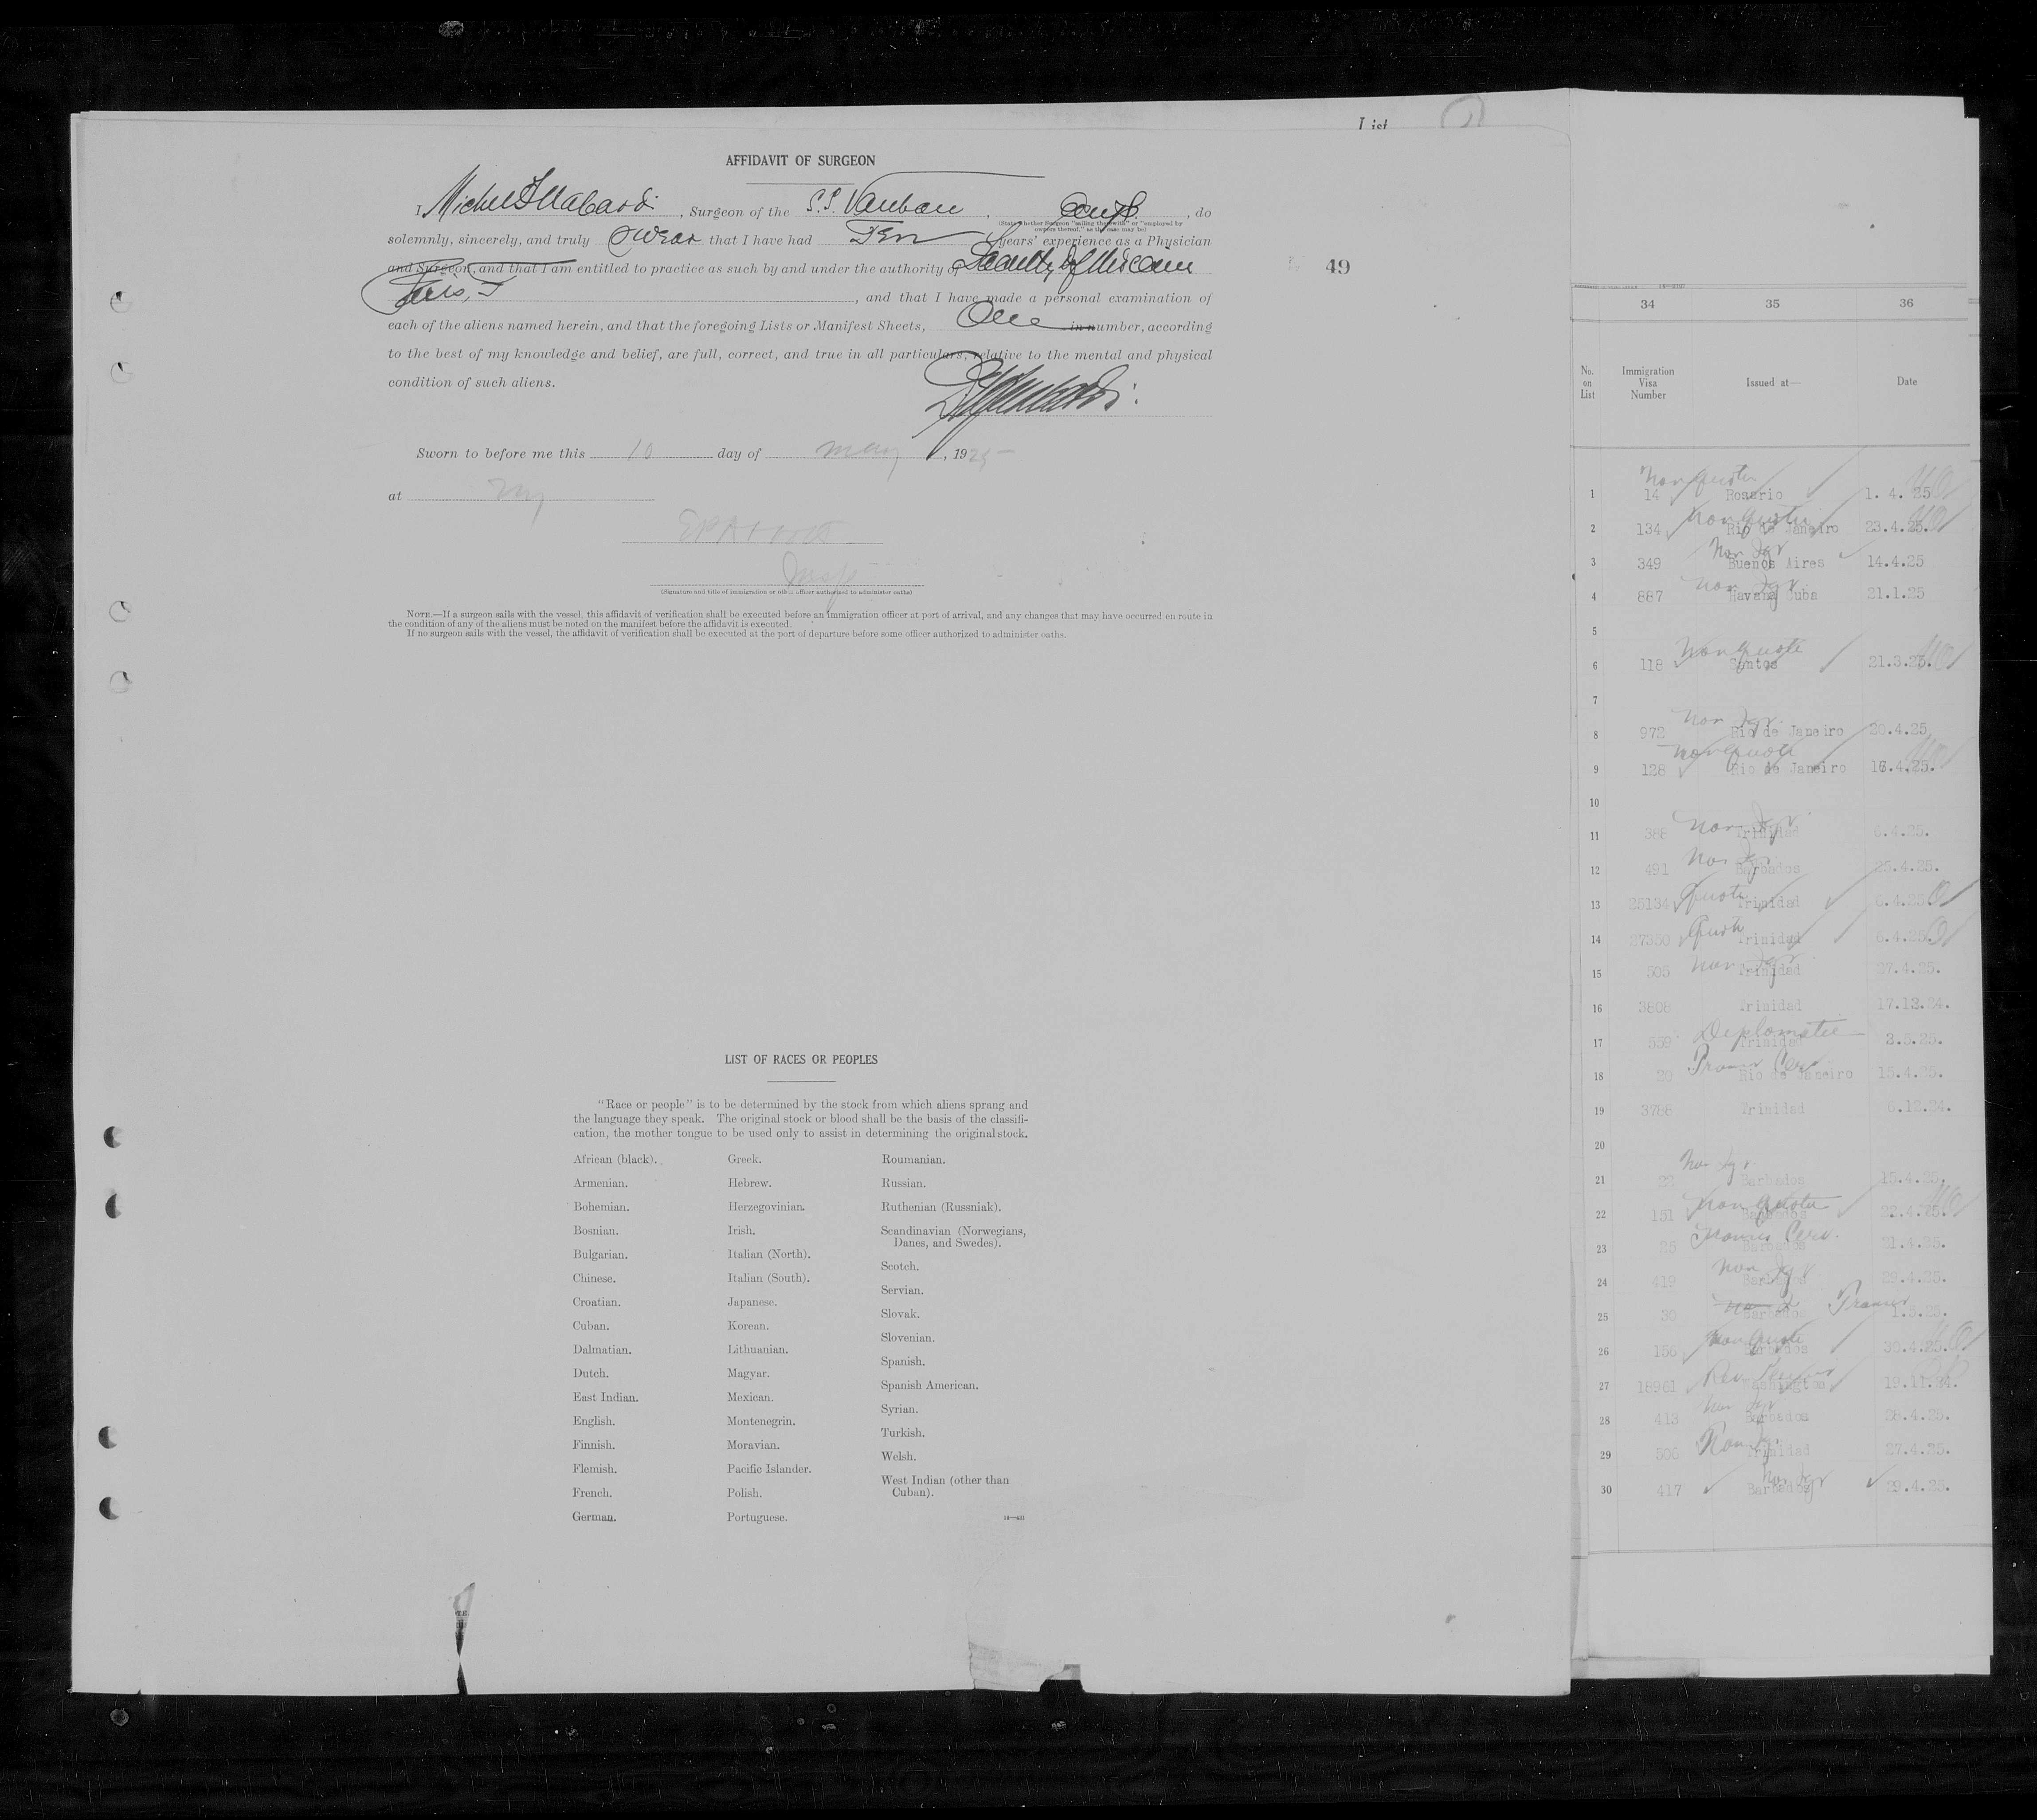 List
AFFIDAVIT OF SURGEON
I, , Surgeon of the S.S. Vauban, , do
(State whether Surgeon "sailing therewith" or "employed by
owners thereof," as the case may be)
solemnly, sincerely, and truly swear that I have had Ten years' experience as a Physician
and Surgeon, and that I am entitled to practice as such by and under the authority of
, and that I have made a personal examination of
each of the aliens named herein, and that the foregoing Lists or Manifest Sheets, One in number, according
to the best of my knowledge and belief, are full, correct, and true in all particulars, relative to the mental and physical
condition of such aliens.
Sworn to before me this 10 day of May, 1925
at NY
Insp
(Signature and title of immigration or other officer authorized to administer oaths)
NOTE.—If a surgeon sails with the vessel, this affidavit of verification shall be executed before an immigration officer at port of arrival, and any changes that may have occurred en route in
the condition of any of the aliens must be noted on the manifest before the affidavit is executed.
If no surgeon sails with the vessel, the affidavit of verification shall be executed at the port of departure before some officer authorized to administer oaths.
49
LIST OF RACES OR PEOPLES
"Race or people" is to be determined by the stock from which aliens sprang and
the language they speak. The original stock or blood shall be the basis of the classifi-
cation, the mother tongue to be used only to assist in determining the original stock.
African (black).
Armenian.
Bohemian.
Bosnian.
Bulgarian.
Chinese.
Croatian.
Cuban.
Dalmatian.
Dutch.
East Indian.
English.
Finnish.
Flemish.
French.
German.
Greek.
Hebrew.
Herzegovinian.
Irish.
Italian (North).
Italian (South).
Japanese.
Korean.
Lithuanian.
Magyar.
Mexican.
Montenegrin.
Moravian.
Pacific Islander.
Polish.
Portuguese.
Roumanian.
Russian.
Ruthenian (Russniak).
Scandinavian (Norwegians,
Danes, and Swedes).
Scotch.
Servian.
Slovak.
Slovenian.
Spanish.
Spanish American.
Syrian.
Turkish.
Welsh.
West Indian (other than
Cuban).
34 35 36
No. on List Immigration Visa Number Issued at— Date
Non Quota
1 14 Rosario 1. 4. 25
Non Quota
2 134 Rio de Janeiro 23.4.25.
Non Igr
3 349 Buenos Aires 14.4.25
Non Igr
4 887 Havana Cuba 21.1.25
5
Non Quota
6 118 Santos 21.3.25.
7
Non Igr
8 972 Rio de Janeiro 20.4.25
Non Quota
9 128 Rio de Janeiro 16.4.25.
10
Non Igr
11 388 Trinidad 6.4.25.
Non Igr
12 491 Barbados 25.4.25.
Quota
13 25134 Trinidad 6.4.25
Quota
14 27350 Trinidad 6.4.25.
Non Igr
15 505 Trinidad 27.4.25.
16 3808 Trinidad 17.12.24.
Diplomatic
17 559 Trinidad 2.5.25.
18 20 Rio de Janeiro 15.4.25.
19 3788 Trinidad 6.12.24.
20
Non Igr
21 22 Barbados 15.4.25.
Non Quota
22 151 Barbados 22.4.25.
23 25 Barbados 21.4.25.
Non Igr
24 419 Barbados 29.4.25.
25 30 Barbados 1.5.25.
Non Quota
26 156 Barbados 30.4.25.
27 18961 Washington 19.11.24.
Non Igr
28 413 Barbados 28.4.25.
Non Igr
29 506 Trinidad 27.4.25.
Non Igr
30 417 Barbados 29.4.25.